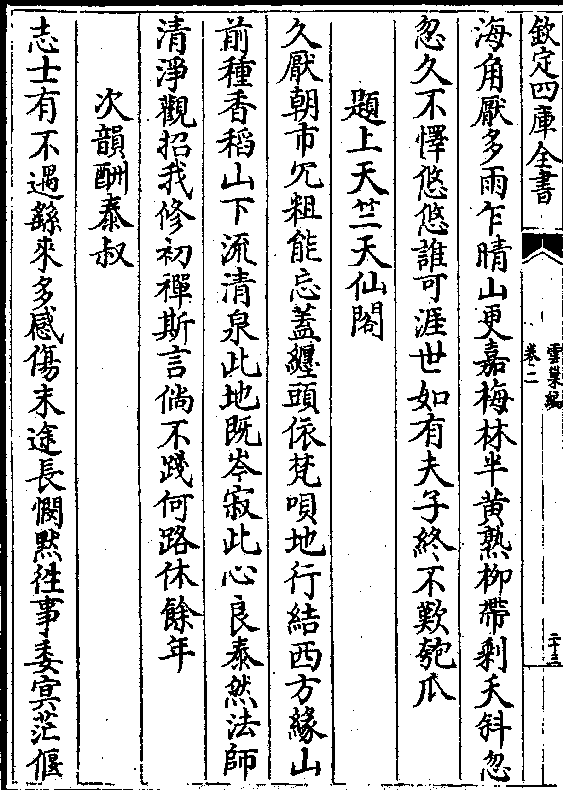 欽定四庫全書
雲巢編
卷二
二十三
海角厭多雨乍晴山更嘉梅林半黄熟柳帶剰夭斜忽
忽久不懌悠悠誰可涯世如有夫子終不歎匏瓜
題上天竺天仙閣
久厭朝市冗粗能忘蓋纒頭依梵唄地行結西方緣山
前種香稻山下流清泉此地既岑寂此心良泰然法師
清淨觀招我修初禪斯言倘不踐何路休餘年
次韻酬泰叔
志士有不遇繇來多感傷末途長憫黙徃事委冥茫偃